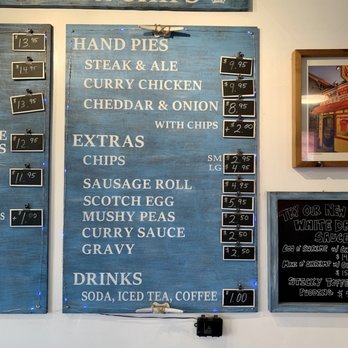 $13.95
$14.95
$13.95
$12.95
$11.95
+$1.00
HAND PIES
STEAK & ALE $9.95
CURRY CHICKEN $9.95
CHEDDAR & ONION $8.95
WITH CHIPS +$2.00
EXTRAS
CHIPS SM $2.95
LG $4.95
SAUSAGE ROLL $4.95
SCOTCH EGG $5.95
MUSHY PEAS $2.50
CURRY SAUCE $2.50
GRAVY $2.50
DRINKS
SODA, ICED TEA, COFFEE $1.00
TRY OUR NEW
WHITE
SAUCE
STICKY
PUDDING